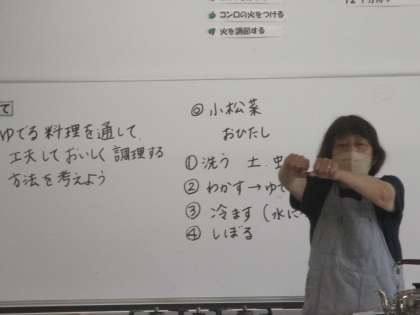 コンロの火をつける
火を調節する
て
ゆでる料理を通して、
工夫しておいしく調理する
方法を考えよう
◎小松菜
おひたし
①洗う 土、虫
②わかす→ゆで
③冷ます(水に
④しぼる